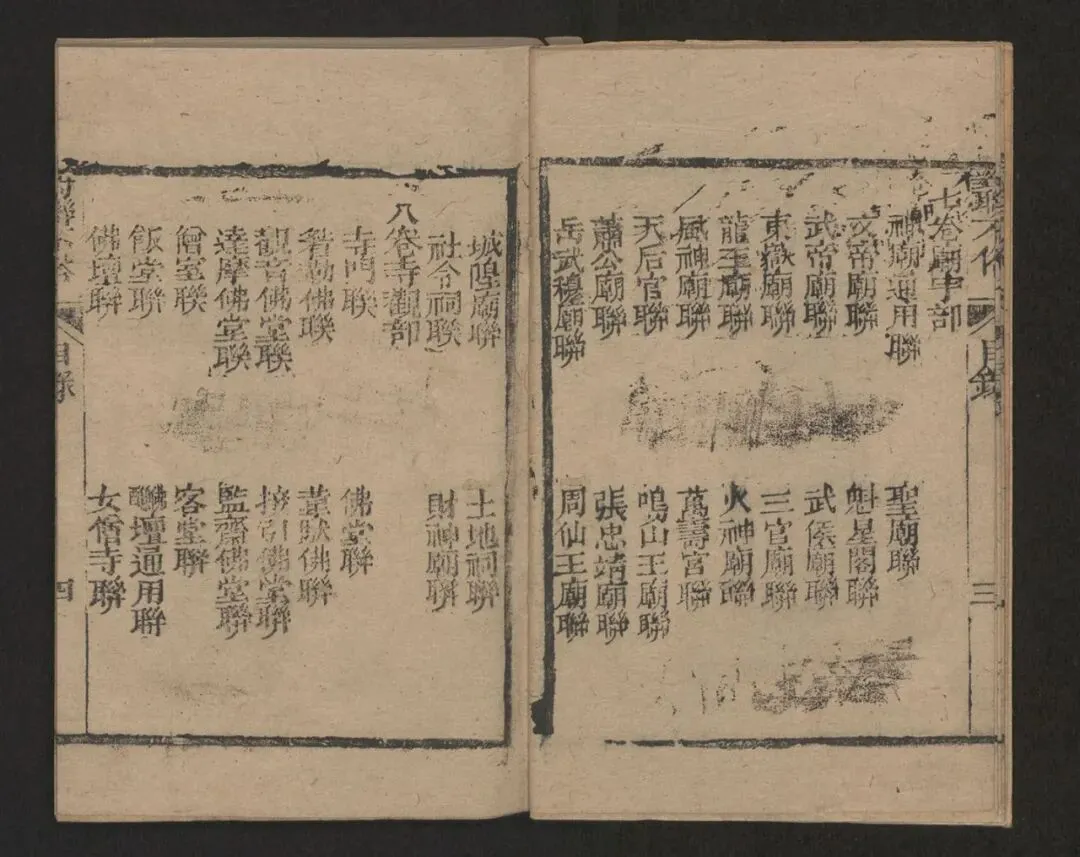 七卷廟中部
神廟通用聯
聖廟聯
文帝廟聯
魁星閣聯
武帝廟聯
武侯廟聯
東嶽廟聯
三官廟聯
龍王廟聯
火神廟聯
風神廟聯
萬壽宮聯
天后官聯
鳴山王廟聯
蕭公廟聯
張忠靖廟聯
岳武穆廟聯
周仙王廟聯
目錄
三
城隍廟聯
土地祠聯
社令祠聯
財神廟聯
八卷寺觀部
寺門聯
佛堂聯
彌勒佛聯
韋馱佛聯
觀音佛堂聯
接引佛堂聯
達摩佛堂聯
監齋佛堂聯
僧室聯
客堂聯
飯堂聯
醮壇通用聯
佛壇聯
女僧寺聯
目錄
四